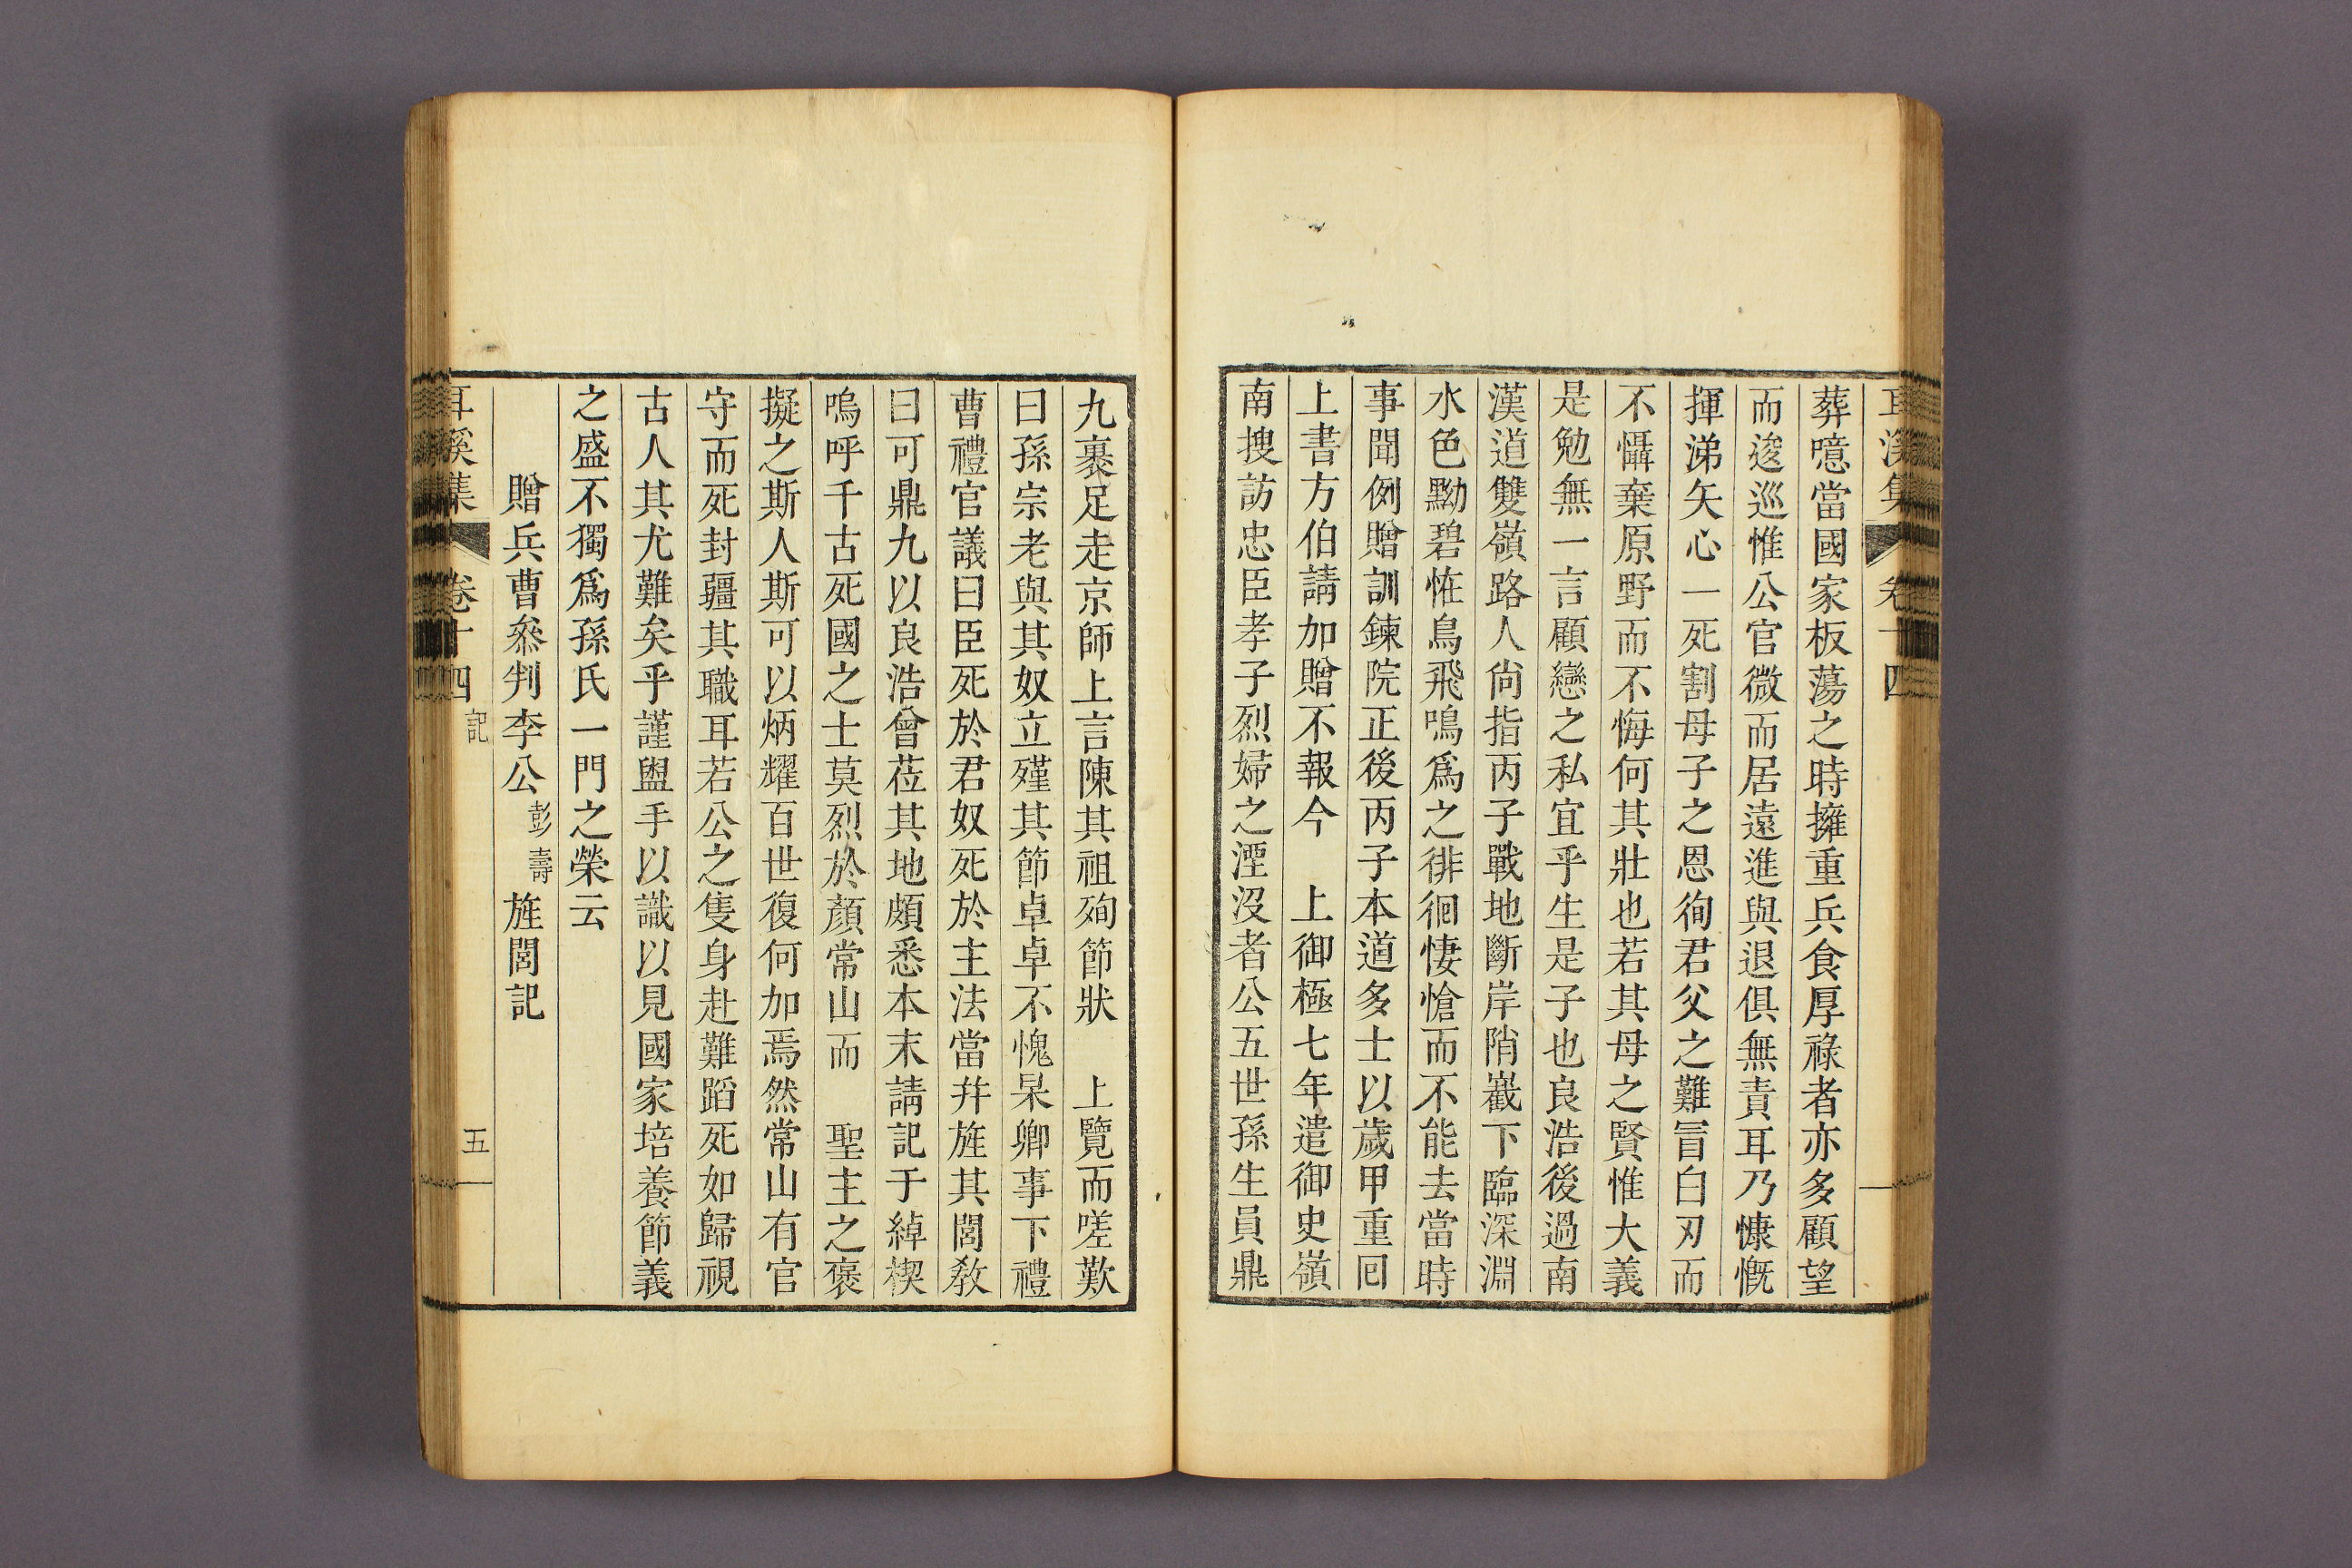 耳溪集 卷十四
葬噫當國家板蕩之時擁重兵食厚祿者亦多顧望
而逡巡惟公官微而居遠進與退俱無責耳乃慷慨
揮涕矢心一死割母子之恩徇君父之難冒白刃而
不懾棄原野而不悔何其壯也若其母之賢惟大義
是勉無一言顧戀之私宜乎生是子也良浩後過南
漢道雙嶺路人尙指丙子戰地斷岸陗巀下臨深淵
水色黝碧恠鳥飛鳴爲之徘徊悽愴而不能去當時
事聞例贈訓鍊院正後丙子本道多士以歲甲重回
上書方伯請加贈不報今　上御極七年遣御史嶺
南搜訪忠臣孝子烈婦之湮沒者公五世孫生員鼎
九裹足走京師上言陳其祖殉節狀　上覽而嗟歎
曰孫宗老與其奴立殣其節卓卓不愧杲卿事下禮
曹禮官議曰臣死於君奴死於主法當幷旌其閭敎
曰可鼎九以良浩曾莅其地頗悉本末請記于綽楔
嗚呼千古死國之士莫烈於顏常山而　聖主之褒
擬之斯人斯可以炳耀百世復何加焉然常山有官
守而死封疆其職耳若公之隻身赴難蹈死如歸視
古人其尤難矣乎謹盥手以識以見國家培養節義
之盛不獨爲孫氏一門之榮云
贈兵曹叅判李公彭壽旌閭記
耳溪集 卷十四 記 五